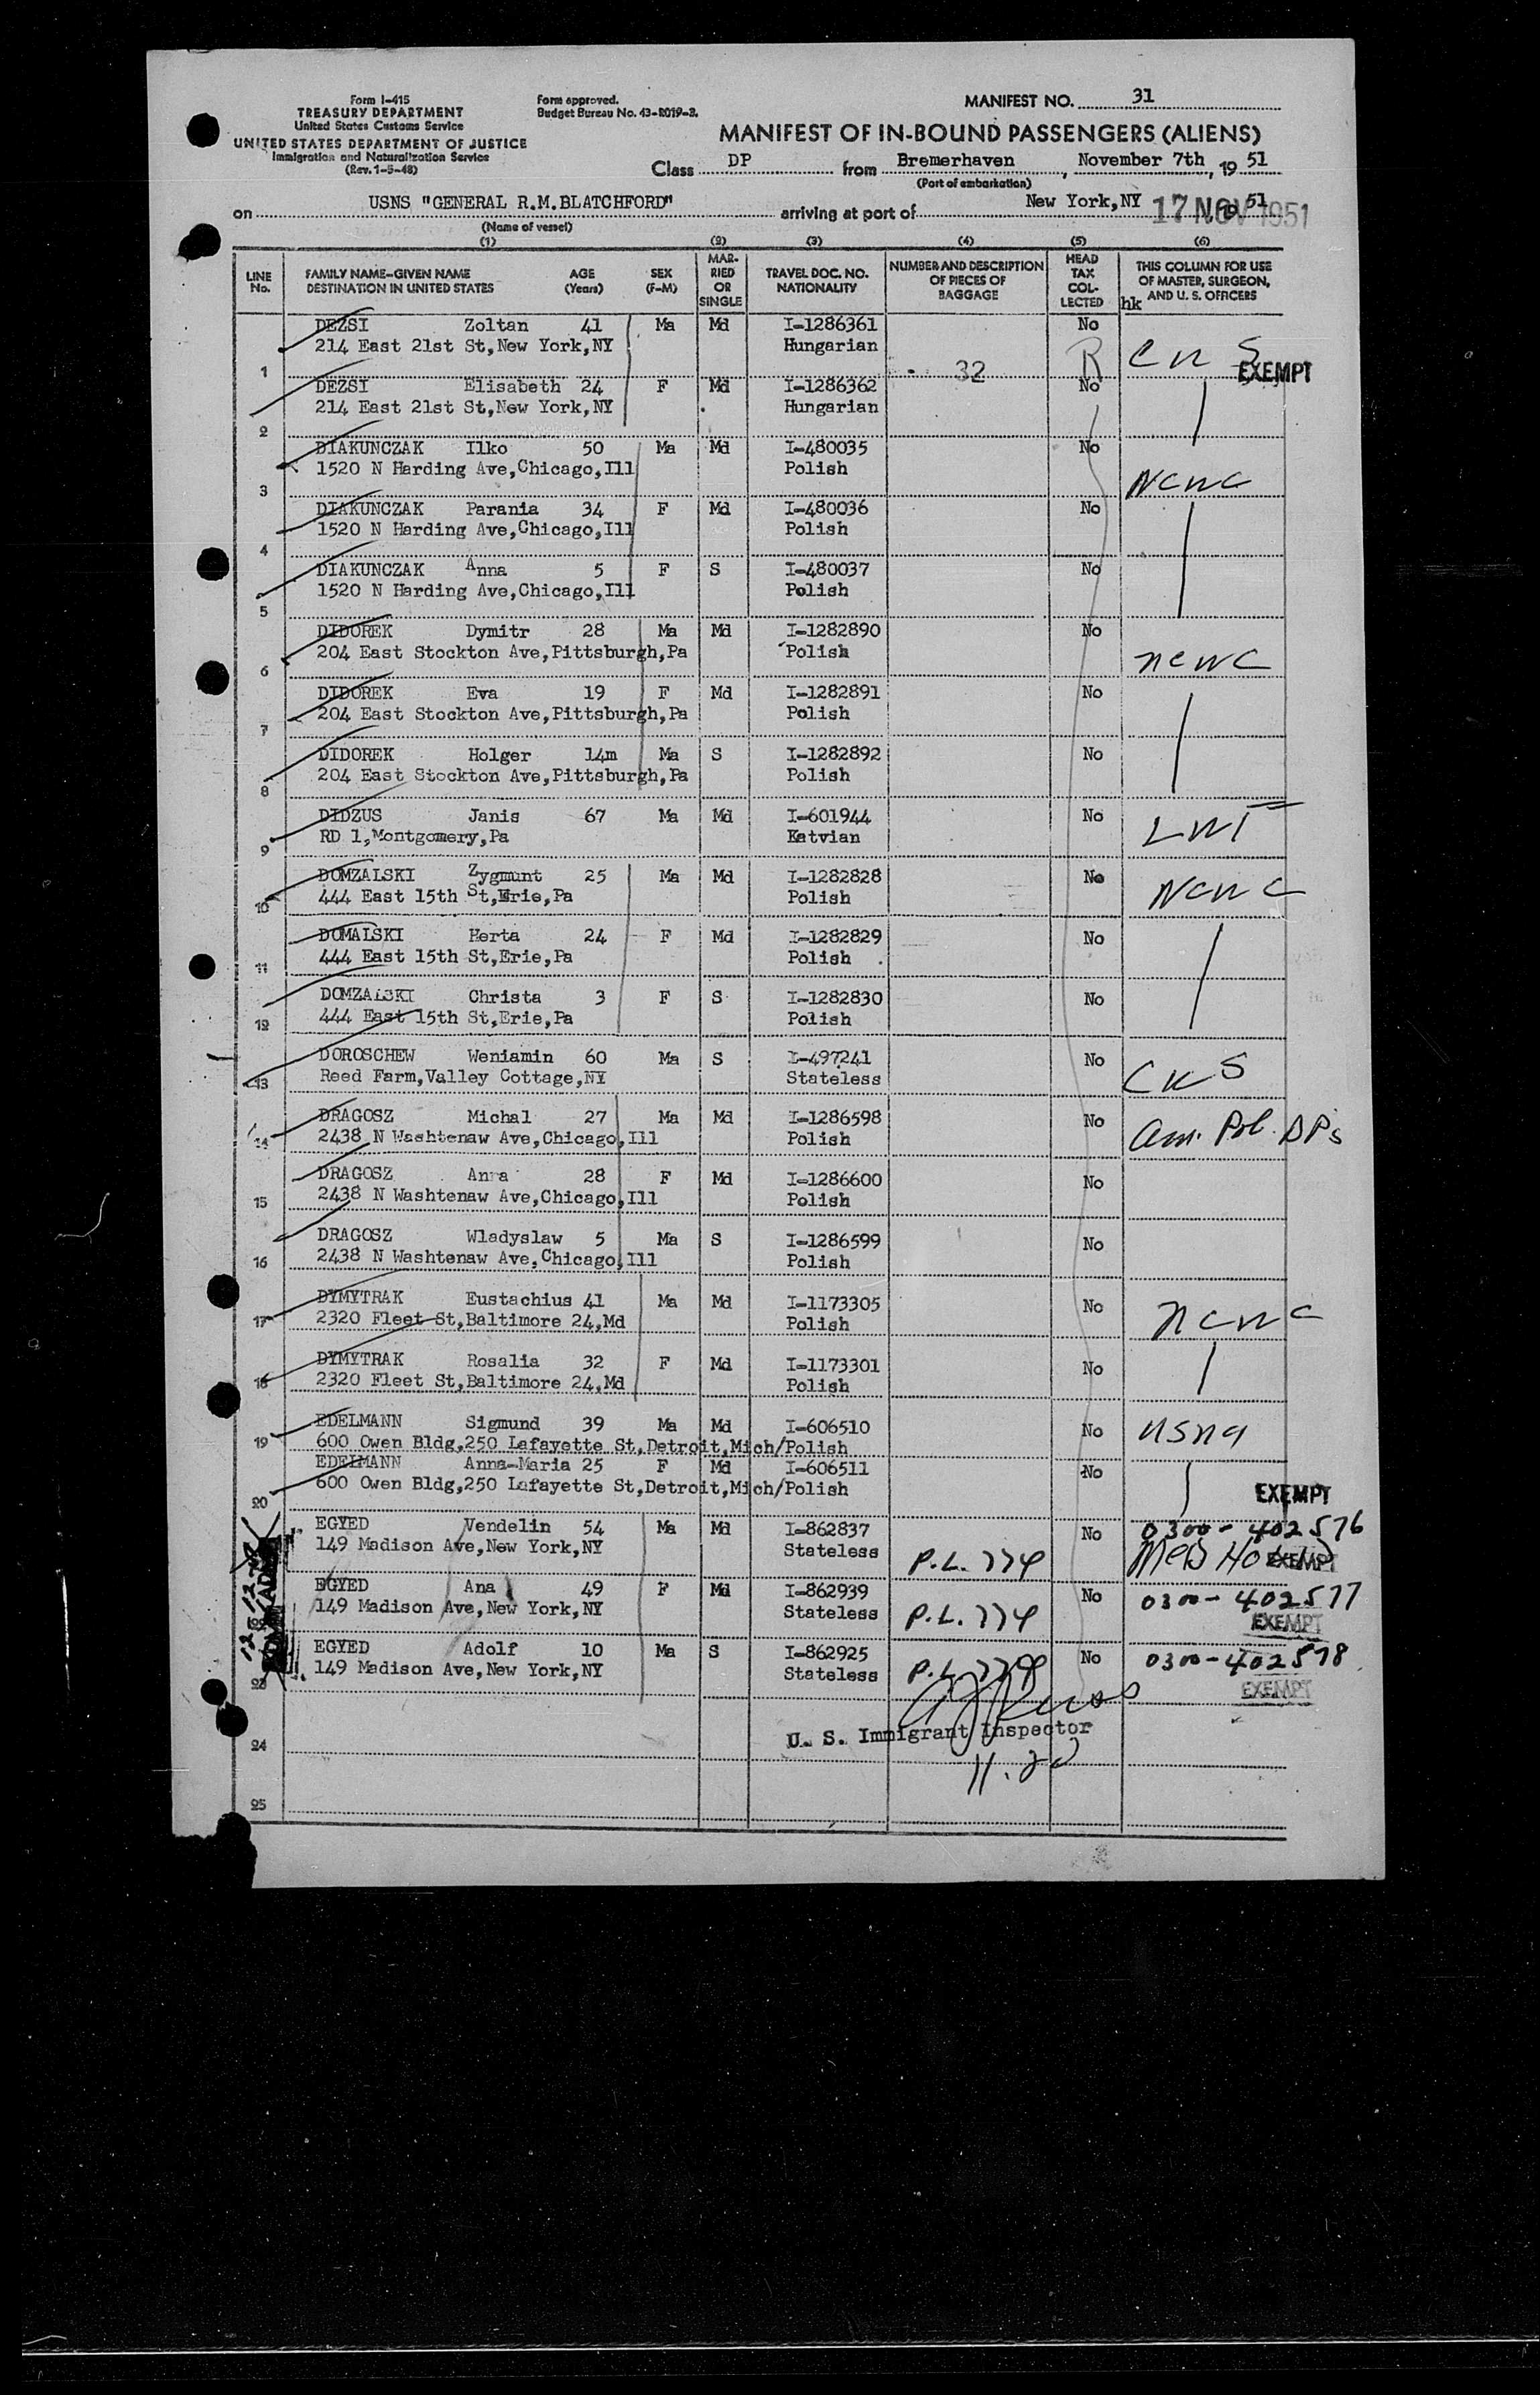 Form I-415
TREASURY DEPARTMENT
United States Customs Service
UNITED STATES DEPARTMENT OF JUSTICE
Immigration and Naturalization Service
(Rev. 1-5-48)
Form approved.
Budget Bureau No. 43-R019-2.
MANIFEST NO. 31
MANIFEST OF IN-BOUND PASSENGERS (ALIENS)
Class DP from Bremerhaven, November 7th, 19 51
(Port of embarkation)
on USNS "GENERAL R.M.BLATCHFORD" arriving at port of New York,NY 17 NOV 1951 51
(Name of vessel)
(1) (2) (3) (4) (5) (6)
LINE No. FAMILY NAME-GIVEN NAME DESTINATION IN UNITED STATES AGE (Years) SEX (F-M) MARRIED OR SINGLE TRAVEL DOC. NO. NATIONALITY NUMBER AND DESCRIPTION OF PIECES OF BAGGAGE HEAD TAX COLLECTED THIS COLUMN FOR USE OF MASTER, SURGEON, AND U. S. OFFICERS
hk
DEZSI Zoltan 41 Ma Md I-1286361 No
1 214 East 21st St,New York,NY Hungarian 32 R EXEMPT
DEZSI Elisabeth 24 F Md I-1286362 No
2 214 East 21st St,New York,NY Hungarian
DIAKUNCZAK Ilko 50 Ma Md I-480035 No
3 1520 N Harding Ave,Chicago,Ill Polish NCWC
DIAKUNCZAK Parania 34 F Md I-480036 No
4 1520 N Harding Ave,Chicago,Ill Polish
DIAKUNCZAK Anna 5 F S I-480037 No
5 1520 N Harding Ave,Chicago,Ill Polish
DIDOREK Dymitr 28 Ma Md I-1282890 No
6 204 East Stockton Ave,Pittsburgh,Pa Polish NCWC
DIDOREK Eva 19 F Md I-1282891 No
7 204 East Stockton Ave,Pittsburgh,Pa Polish
DIDOREK Holger 14m Ma S I-1282892 No
8 204 East Stockton Ave,Pittsburgh,Pa Polish
DIDZUS Janis 67 Ma Md I-601944 No
9 RD 1,Montgomery,Pa Katvian
DOMZALSKI Zygmunt 25 Ma Md I-1282828 No
10 444 East 15th St,Erie,Pa Polish NCWC
DOMALSKI Herta 24 F Md I-1282829 No
11 444 East 15th St,Erie,Pa Polish
DOMZALSKI Christa 3 F S I-1282830 No
12 444 East 15th St,Erie,Pa Polish
DOROSCHEW Weniamin 60 Ma S I-497241 No
13 Reed Farm,Valley Cottage,NY Stateless
DRAGOSZ Michal 27 Ma Md I-1286598 No
14 2438 N Washtenaw Ave,Chicago,Ill Polish Am. Pol. DPs
DRAGOSZ Anna 28 F Md I-1286600 No
15 2438 N Washtenaw Ave,Chicago,Ill Polish
DRAGOSZ Wladyslaw 5 Ma S I-1286599 No
16 2438 N Washtenaw Ave,Chicago,Ill Polish
DYMYTRAK Eustachius 41 Ma Md I-1173305 No
17 2320 Fleet St,Baltimore 24,Md Polish NCWC
DYMYTRAK Rosalia 32 F Md I-1173301 No
18 2320 Fleet St,Baltimore 24,Md Polish
EDELMANN Sigmund 39 Ma Md I-606510 No USNA
19 600 Owen Bldg,250 Lafayette St,Detroit,Mich/Polish
EDELMANN Anna-Maria 25 F Md I-606511 No
20 600 Owen Bldg,250 Lafayette St,Detroit,Mich/Polish EXEMPT
EGYED Vendelin 54 Ma Md I-862837 No 0300-402576
149 Madison Ave,New York,NY Stateless P.L. 774 Med Hold EXEMPT
EGYED Ana 49 F Md I-862939 No 0300-402577
149 Madison Ave,New York,NY Stateless P.L. 774 EXEMPT
EGYED Adolf 10 Ma S I-862925 No 0300-402578
23 149 Madison Ave,New York,NY Stateless P.L. 774 EXEMPT
24 U. S. Immigrant Inspector
25